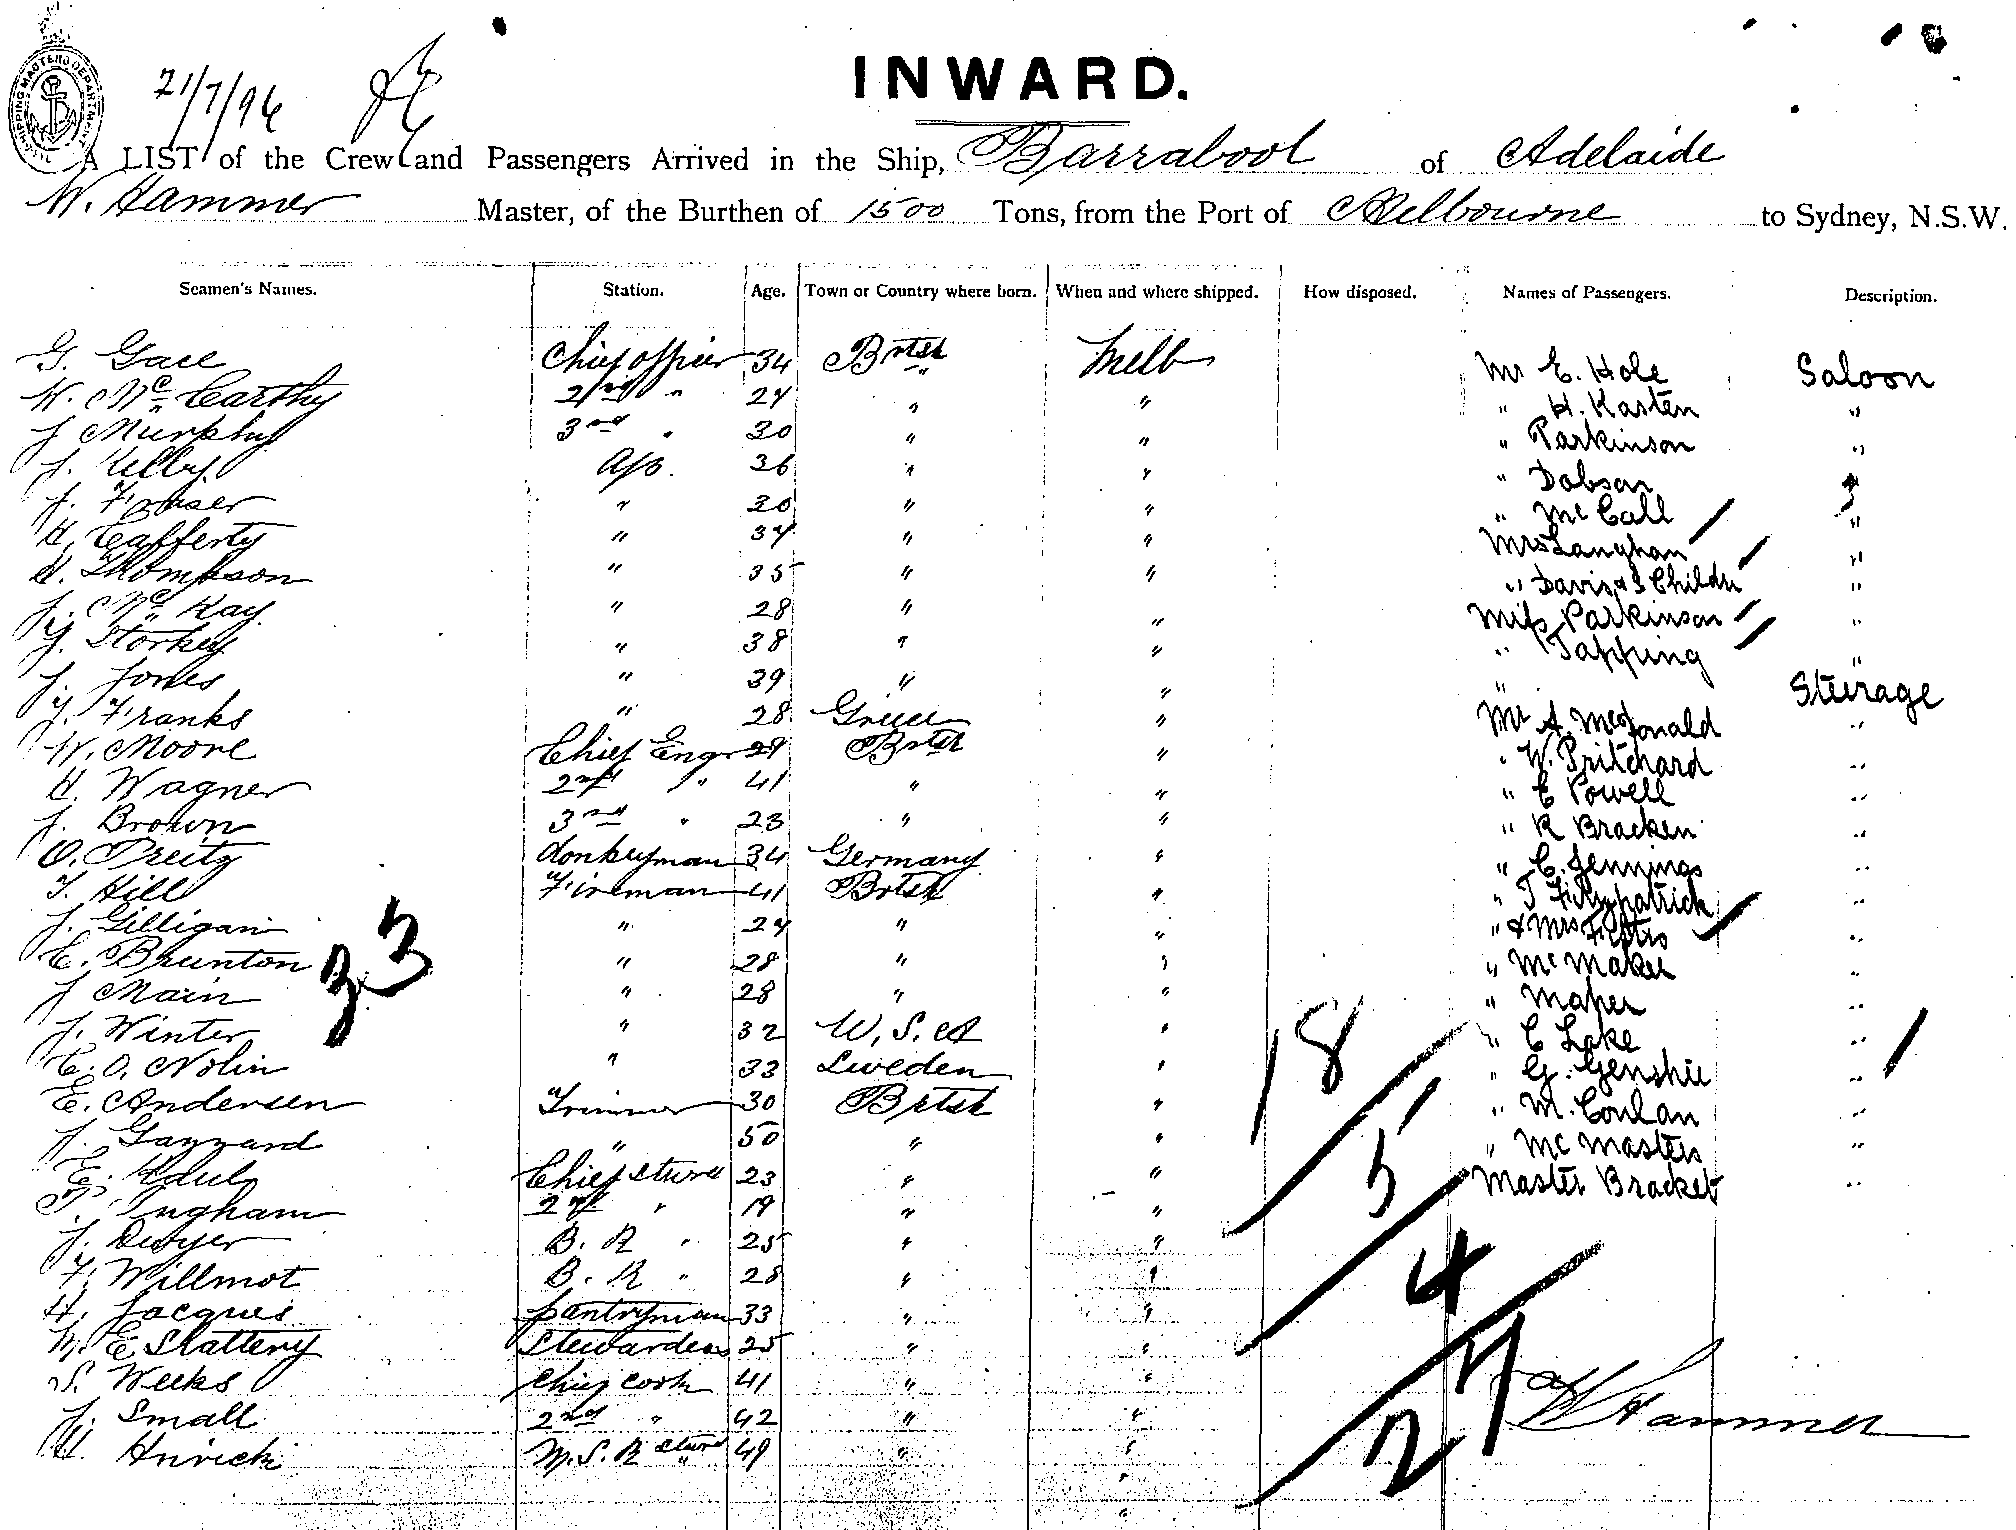 SHIPPING MASTERS DEPARTMENT
21/7/96
INWARD.
A LIST of the Crew and Passengers Arrived in the Ship, Barrabool of Adelaide
W. Hammer Master, of the Burthen of 1500 Tons, from the Port of Melbourne to Sydney, N.S.W.
Seamen's Names. Station. Age. Town or Country where born. When and where shipped. How disposed. Names of Passengers. Description.
G. Gall Chief officer 34 Brtsh Melb Mr E. Hole Saloon
W. McCarthy 2nd " 24 " " " H. Kasten "
J Murphy 3rd " 30 " " " Parkinson "
J. Kelly AB. 36 " " " Dobson "
J. Fraser " 30 " " " McCall "
H. Cafferty " 34 " " Mrs Langhan "
H. Thompson " 35 " " " Davis & 3 Childn "
J. McKay " 28 " " Miss Parkinson "
J. Storkey " 38 " " " Tapping "
J. Jones " 39 " "
J. Franks " 28 Greece " Mr A. McDonald Steerage
W. Moore Chief Engr 29 Brtsh " " W. Pritchard "
H. Wagner 2nd " 41 " " " E Powell "
J. Brown 3rd " 23 " " " R Bracken "
O. Treitz donkeyman 34 Germany " " C. Jennings "
T. Hill Fireman 41 Brtsh " " T Fitzpatrick "
J. Gilligan " 24 " " " & Mrs "
E. Brunton " 28 " " " McMaker "
J Main " 28 " " " Maher "
J. Winter " 32 U.S.A " " C Lake "
C. O. Nolin " 33 Sweden " " G. "
E. Andersen Trimmer 30 Brtsh " " M. Conlan "
J. Gazzard " 50 " " " McMasters "
E. Chief Stwrd 23 " " Master Bracket "
T. Ingham 2nd " 19 " "
J. Dwyer B. R " 25 " "
F. Willmot B. R " 28 " "
H. Jacques pantryman 33 " "
M. E Slattery Stewardess 25 " "
S. Weeks Chief cook 41 " "
J. Small 2nd " 42 " "
H. M.S.R Stwrd 49 " "
33
18
5
4
27
W Hammer